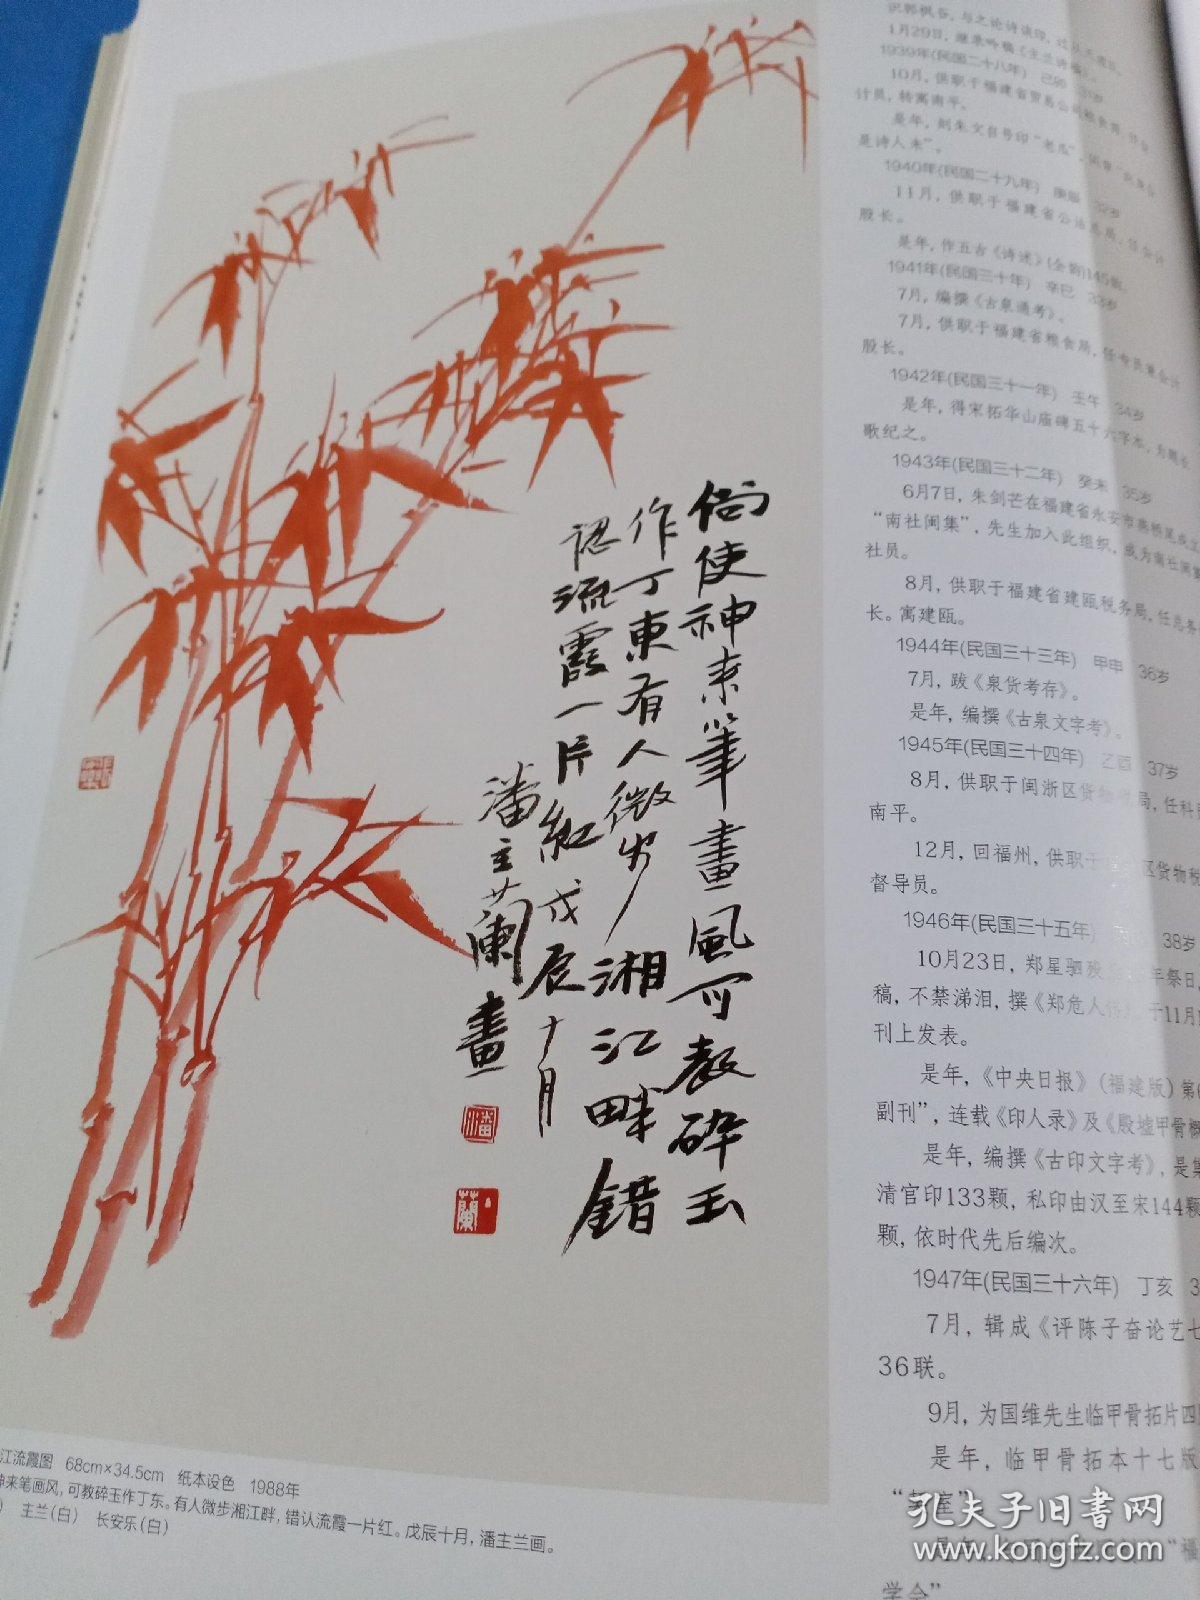 倘使神来筆畫風可教碎玉
作丁東有人微步湘江畔錯
認流霞一片紅戊辰十月
潘主蘭畫
潘
蘭
江流霞图 68cm×34.5cm 纸本设色 1988年
神来笔画风,可教碎玉作丁东。有人微步湘江畔,错认流霞一片红。戊辰十月,潘主兰画。
主兰(白) 长安乐(白)
识郭枫谷,与之论诗谈印,过从
1月29日,继录吟稿《主兰诗
1939年(民国二十八年) 己卯 31岁
10月,供职于福建省贸易公司粮食
计员,转寓南平。
是年,刻朱文自号印“老瓜”
是诗人未”。
1940年(民国二十九年) 庚辰 32岁
11月,供职于福建省公沽总局,任会计
股长。
是年,作五古《诗述》(全韵)145韵。
1941年(民国三十年) 辛巳 33岁
7月,编撰《古泉通考》。
7月,供职于福建省粮食局,任专员兼会计
股长。
1942年(民国三十一年) 壬午 34岁
是年,得宋拓华山庙碑五十六字本,为题长
歌纪之。
1943年(民国三十二年) 癸未 35岁
6月7日,朱剑芒在福建省永安市燕桥尾成立
“南社闽集”,先生加入此组织,成为南社闽集
社员。
8月,供职于福建省建瓯税务局,任总务
长。寓建瓯。
1944年(民国三十三年) 甲申 36岁
7月,跋《泉货考存》。
是年,编撰《古泉文字考》。
1945年(民国三十四年) 乙酉 37岁
8月,供职于闽浙区货物税局,任科
南平。
12月,回福州,供职于 区货物税
督导员。
1946年(民国三十五年) 38岁
10月23日,郑星驷 年祭日,
稿,不禁涕泪,撰《郑危人传》,于11月
刊上发表。
是年,《中央日报》(福建版)第
副刊”,连载《印人录》及《殷墟甲骨概
是年,编撰《古印文字考》,是集
清官印133颗,私印由汉至宋144颗
颗,依时代先后编次。
1947年(民国三十六年) 丁亥 3
7月,辑成《评陈子奋论艺七
36联。
9月,为国维先生临甲骨拓片四
是年,临甲骨拓本十七版
是年, “福
学会”
孔夫子旧书网
www.kongfz.com